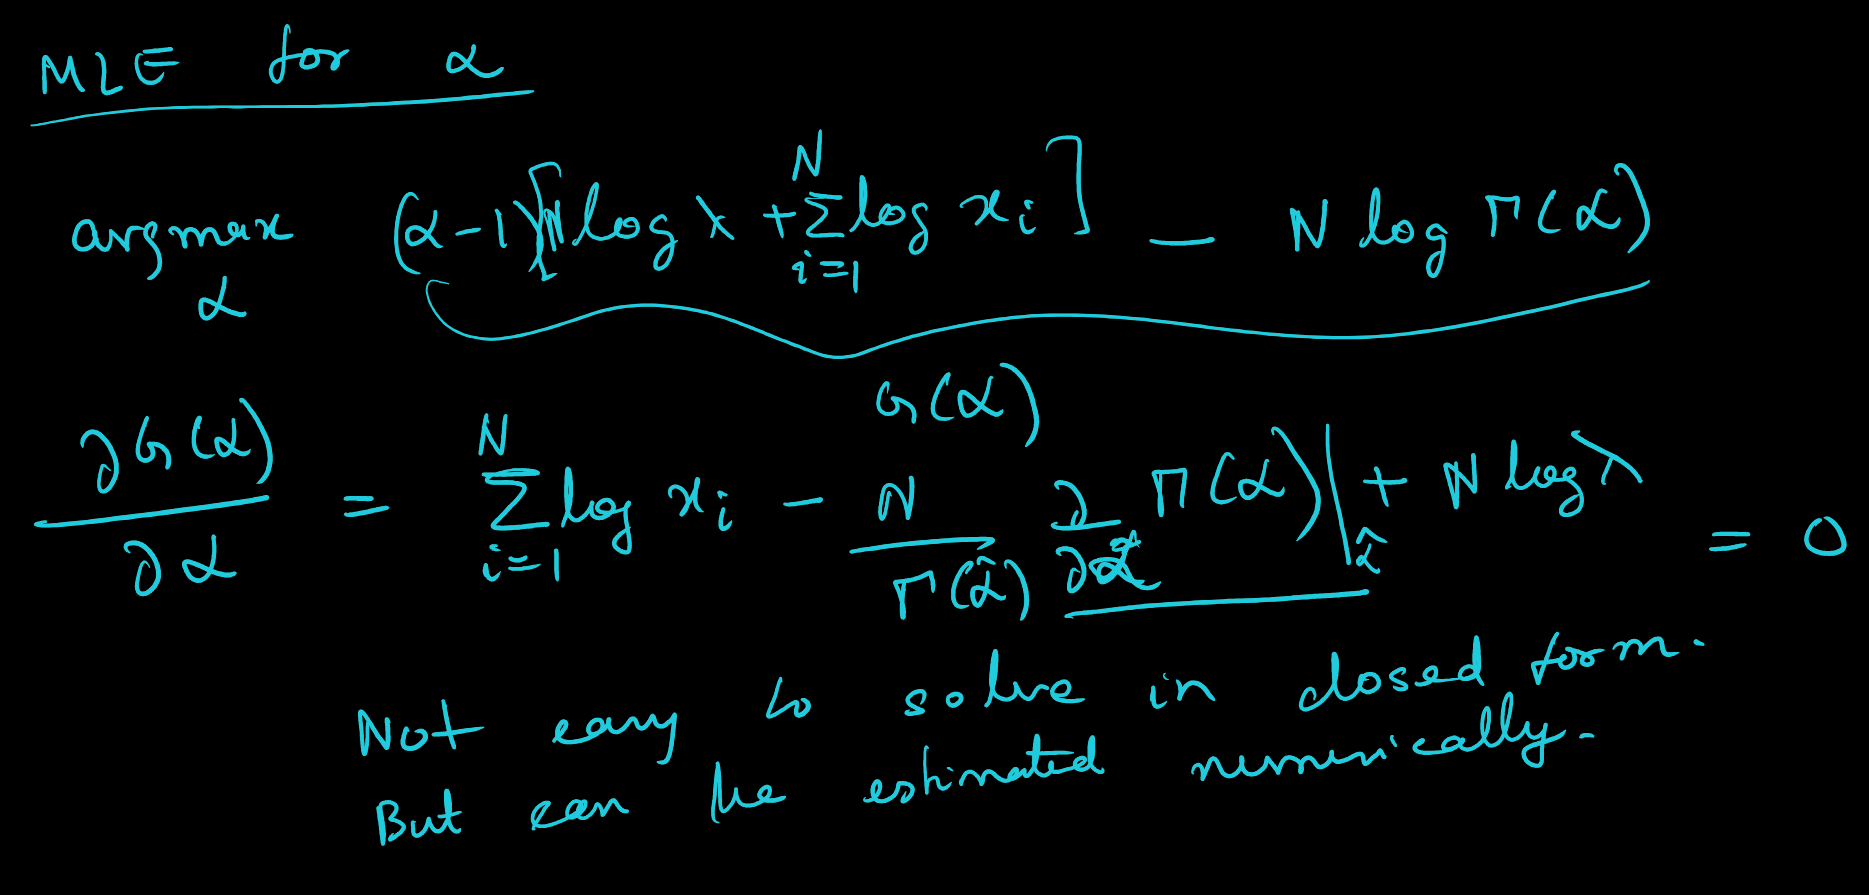 MLE for α
argmax_α (α-1)[N log λ + Σ_{i=1}^{N} log x_i] - N log Γ(α)
G(α)
∂G(α)/∂α = Σ_{i=1}^{N} log x_i - N/Γ(α̂) ∂/∂α Γ(α)|_α̂ + N log λ = 0
Not easy to solve in closed form.
But can be estimated numerically.